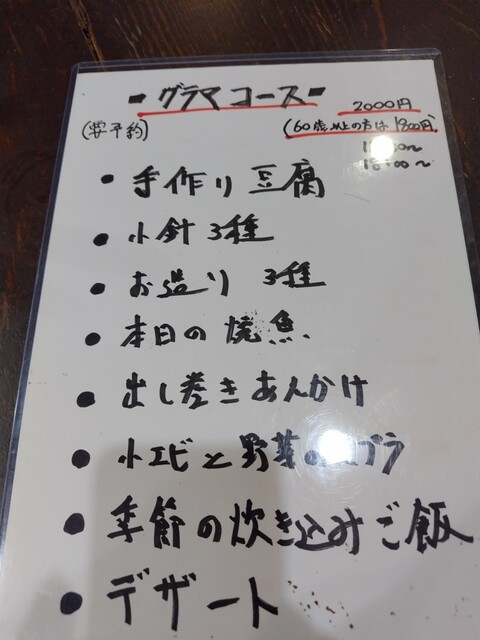 ■グラマコース■
2000円
(要予約)
(60歳以上の方は1800円)
18:00〜
・手作り豆腐
・小針3種
・お造り 3種
・本日の焼魚
・出し巻きあんかけ
・小エビと野菜の プラ
・季節の炊き込みご飯
・デザート